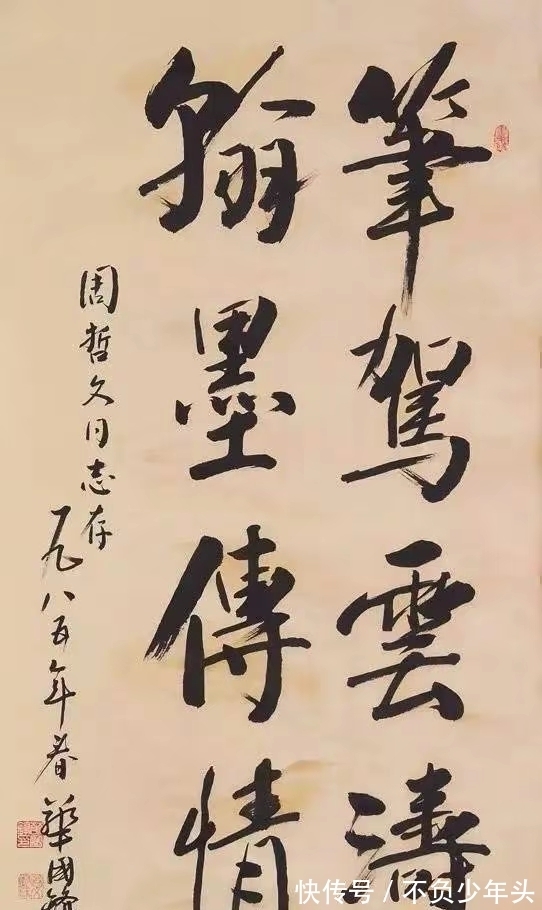 筆駕雲濤
翰墨傳情
周哲文同志存
一九八五年春
華國鋒
快传号/不负少年头